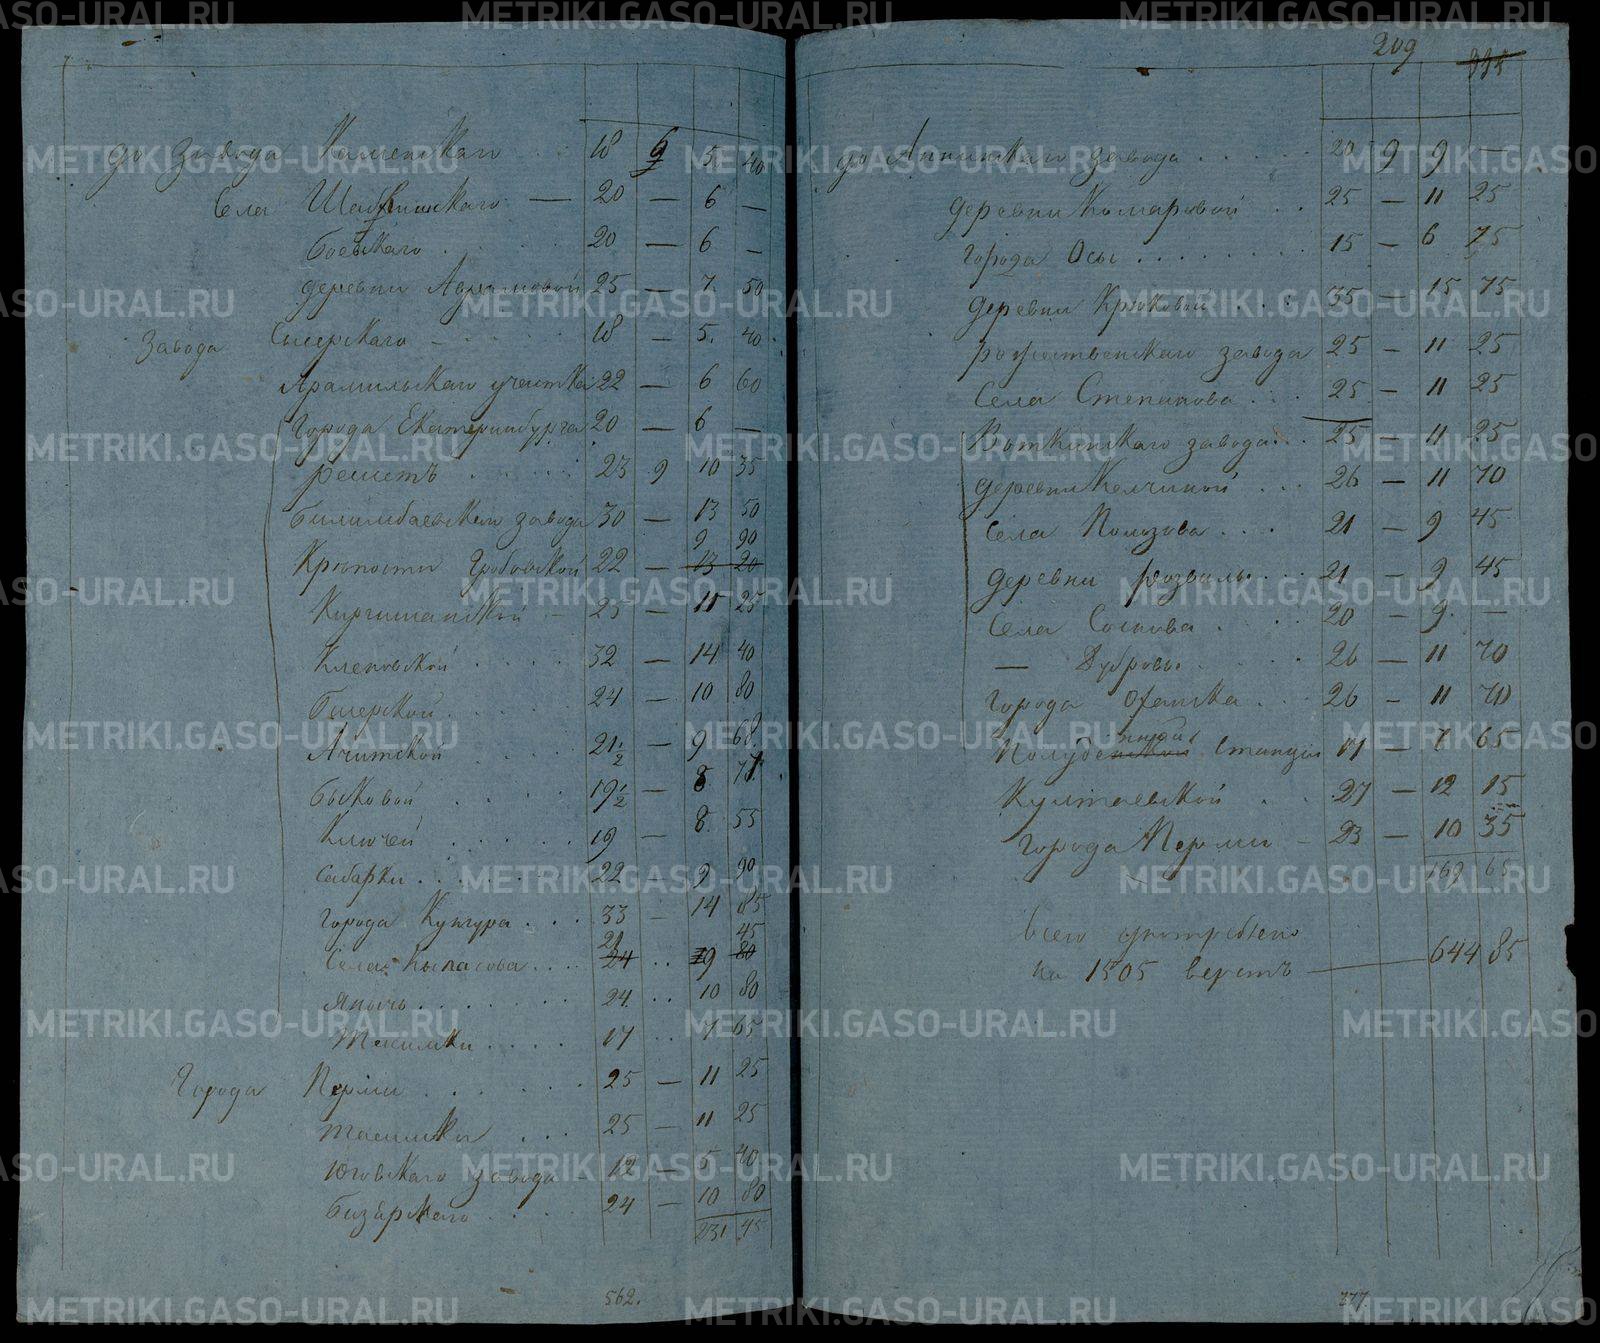 до завода Каменскаго . . . 18 6 5 40
Села Шабринскаго — 20 — 6 —
Боевскаго . . . 20 — 6 —
деревни 25 — 7 50
Завода Сысерскаго — . . . 18 — 5 40
Арамильскаго участка 22 — 6 60
Города Екатеринбурга 20 — 6 —
решетъ . . . 23 9 10 35
Билимбаевскаго завода 30 — 13 50
9 90
Крѣпости Гробовской 22 — 13 20
Киргишанской — 25 — 11 25
Кленовской . . . 32 — 14 40
Бисерской . . . 24 — 10 80
Ачитской . . . 21½ — 9 68
Быковой . . . 19½ — 8 77
Ключей . . . 19 — 8 55
Сабарки . . . 22 — 9 90
города Кунгура . . . 33 — 14 85
21 45
Села Кыласова . . . 24 . . 9 80
Янычь . . . 24 . . 10 80
17 . . 7 65
Города Перми . . . 25 — 11 25
25 — 11 25
Юговскаго завода — 12 — 5 40
Бизярскаго . . . 24 — 10 80
231 45
562.
209 335
до Аннинскаго завода . . . 20 9 9 —
деревни Комаровой . . 25 — 11 25
города Осы . . . 15 — 6 75
деревни Крюковой . . . 35 — 15 75
рожественскаго завода 25 — 11 25
Села Степанова . . . 25 — 11 25
Воткинскаго завода . . . 25 — 11 25
деревни Кельчиной . . . 26 — 11 70
Села Полозова . . . 21 — 9 45
деревни . . . 21 — 9 45
Села Соснова . . . 20 — 9 —
— Дубровы . . . 26 — 11 70
города Оханска . . . 26 — 11 70
Станціи 17 — 7 65
Култаевской . . . 27 — 12 15
города Перми — 23 — 10 35
169 65
Всего употреблено
на 1505 верстъ — 644 85
277.
METRIKI.GASO-URAL.RU